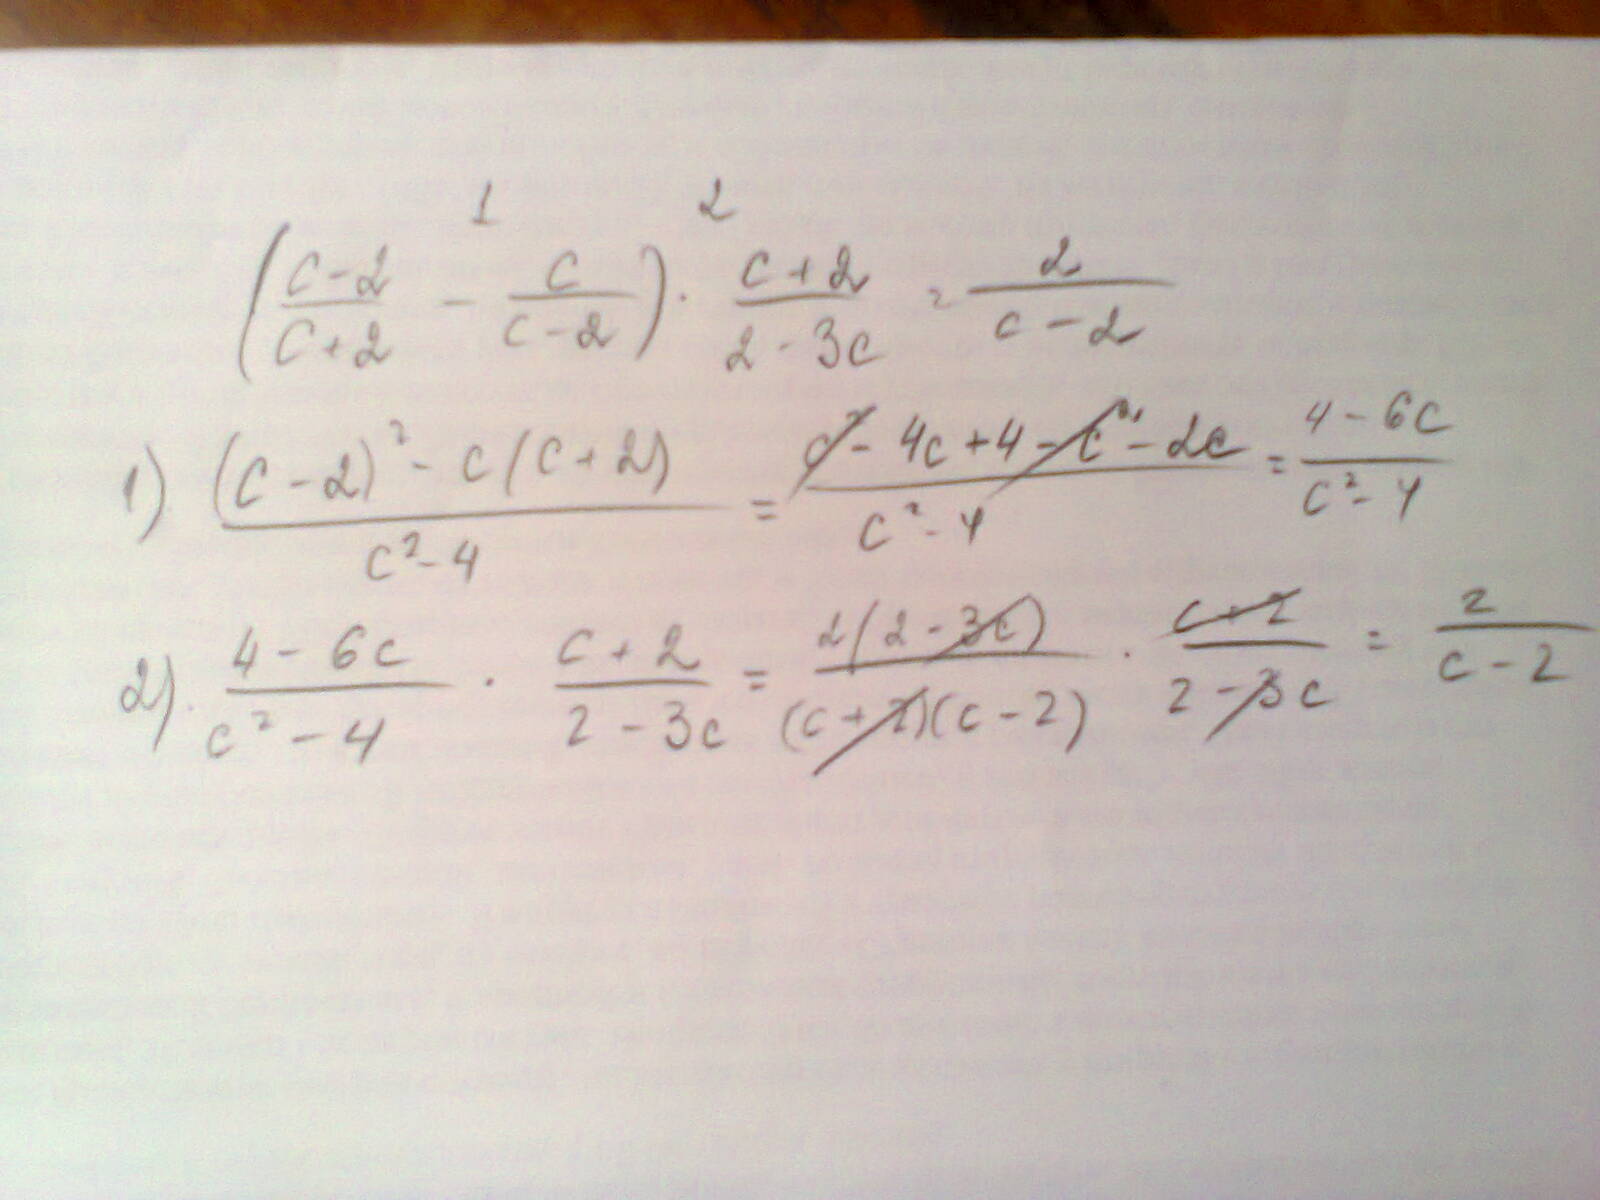 1 2
(c-2/c+2 - c/c-2) · c+2/2-3c = 2/c-2
1) (c-2)² - c(c+2)/c²-4 = c²-4c+4-c²-2c/c²-4 = 4-6c/c²-4
2). 4-6c/c²-4 · c+2/2-3c = 2(2-3c)/(c+2)(c-2) · c+2/2-3c = 2/c-2